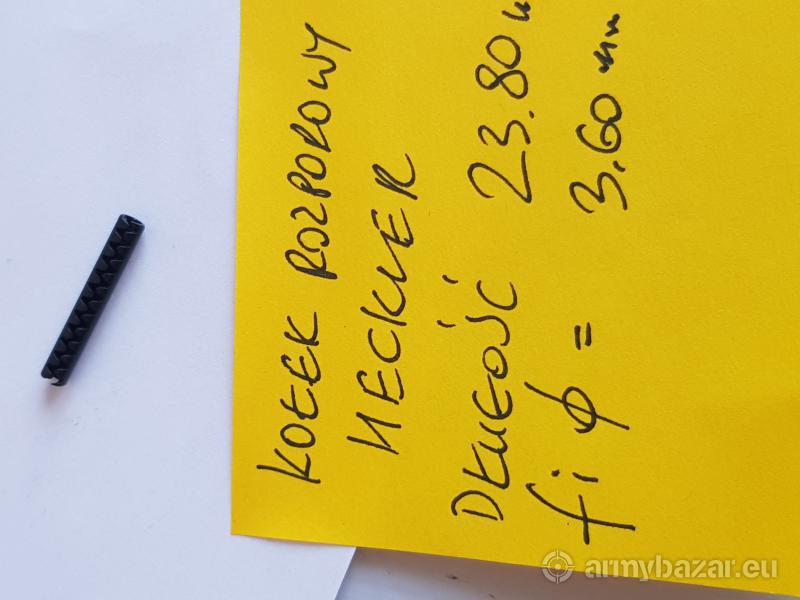 KOŁEK ROZPOROWY
HECKLER
DŁUGOŚĆ 23.80
fi ϕ = 3.60 mm
armybazar.eu